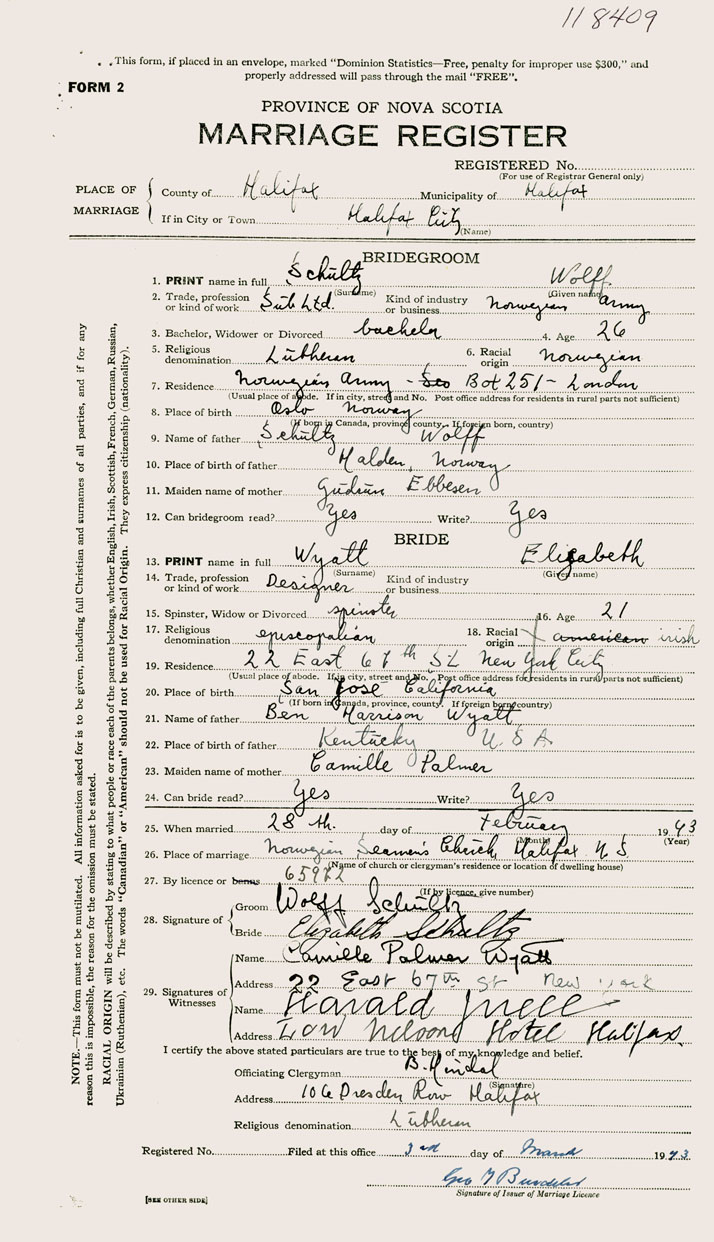 118409
This form, if placed in an envelope, marked "Dominion Statistics—Free, penalty for improper use $300," and
properly addressed will pass through the mail "FREE".
FORM 2
PROVINCE OF NOVA SCOTIA
MARRIAGE REGISTER
REGISTERED No.
(For use of Registrar General only)
PLACE OF MARRIAGE
County of Halifax Municipality of Halifax
If in City or Town Halifax City
(Name)
BRIDEGROOM
1. PRINT name in full Schultz Wolff
(Surname) (Given name)
2. Trade, profession or kind of work Sub Ltd. Kind of industry or business norwegian army
3. Bachelor, Widower or Divorced bachelor 4. Age 26
5. Religious denomination Lutheran 6. Racial origin norwegian
7. Residence norwegian Army - Box 251 - London
(Usual place of abode. If in city, street and No. Post office address for residents in rural parts not sufficient)
8. Place of birth Oslo Norway
(If born in Canada, province, county. If foreign born, country)
9. Name of father Schultz Wolff
10. Place of birth of father Halden, Norway
11. Maiden name of mother Gudrun Ebbesen
12. Can bridegroom read? Yes Write? Yes
BRIDE
13. PRINT name in full Wyatt Elizabeth
(Surname) (Given name)
14. Trade, profession or kind of work Designer Kind of industry or business
15. Spinster, Widow or Divorced spinster 16. Age 21
17. Religious denomination episcopalian 18. Racial origin american irish
19. Residence 22 East 67th St. New York City
(Usual place of abode. If in city, street and No. Post office address for residents in rural parts not sufficient)
20. Place of birth San José California
(If born in Canada, province, county. If foreign born, country)
21. Name of father Ben Harrison Wyatt
22. Place of birth of father Kentucky U.S.A
23. Maiden name of mother Camille Palmer
24. Can bride read? Yes Write? Yes
25. When married 28 th. day of February 1943
(Month) (Year)
26. Place of marriage Norwegian Seamen's Church, Halifax N S
(Name of church or clergyman's residence or location of dwelling house)
27. By licence or banns 65972
(If by licence, give number)
28. Signature of
Groom Wolff Schultz
Bride Elizabeth Schultz
29. Signatures of Witnesses
Name Camille Palmer Wyatt
Address 22 East 67th St New York
Name Harald
Address Lord Nelson Hotel Halifax.
I certify the above stated particulars are true to the best of my knowledge and belief.
Officiating Clergyman B. Hindal
(Signature)
Address 106 Dresden Row Halifax
Religious denomination Lutheran
Registered No. Filed at this office 3rd day of March 1943
Geo
Signature of Issuer of Marriage Licence
[SEE OTHER SIDE]
NOTE.—This form must not be mutilated. All information asked for is to be given, including full Christian and surnames of all parties, and if for any
reason this is impossible, the reason for the omission must be stated.
RACIAL ORIGIN will be described by stating to what people or race each of the parents belongs, whether English, Irish, Scottish, French, German, Russian,
Ukrainian (Ruthenian), etc. The words "Canadian" or "American" should not be used for Racial Origin. They express citizenship (nationality).